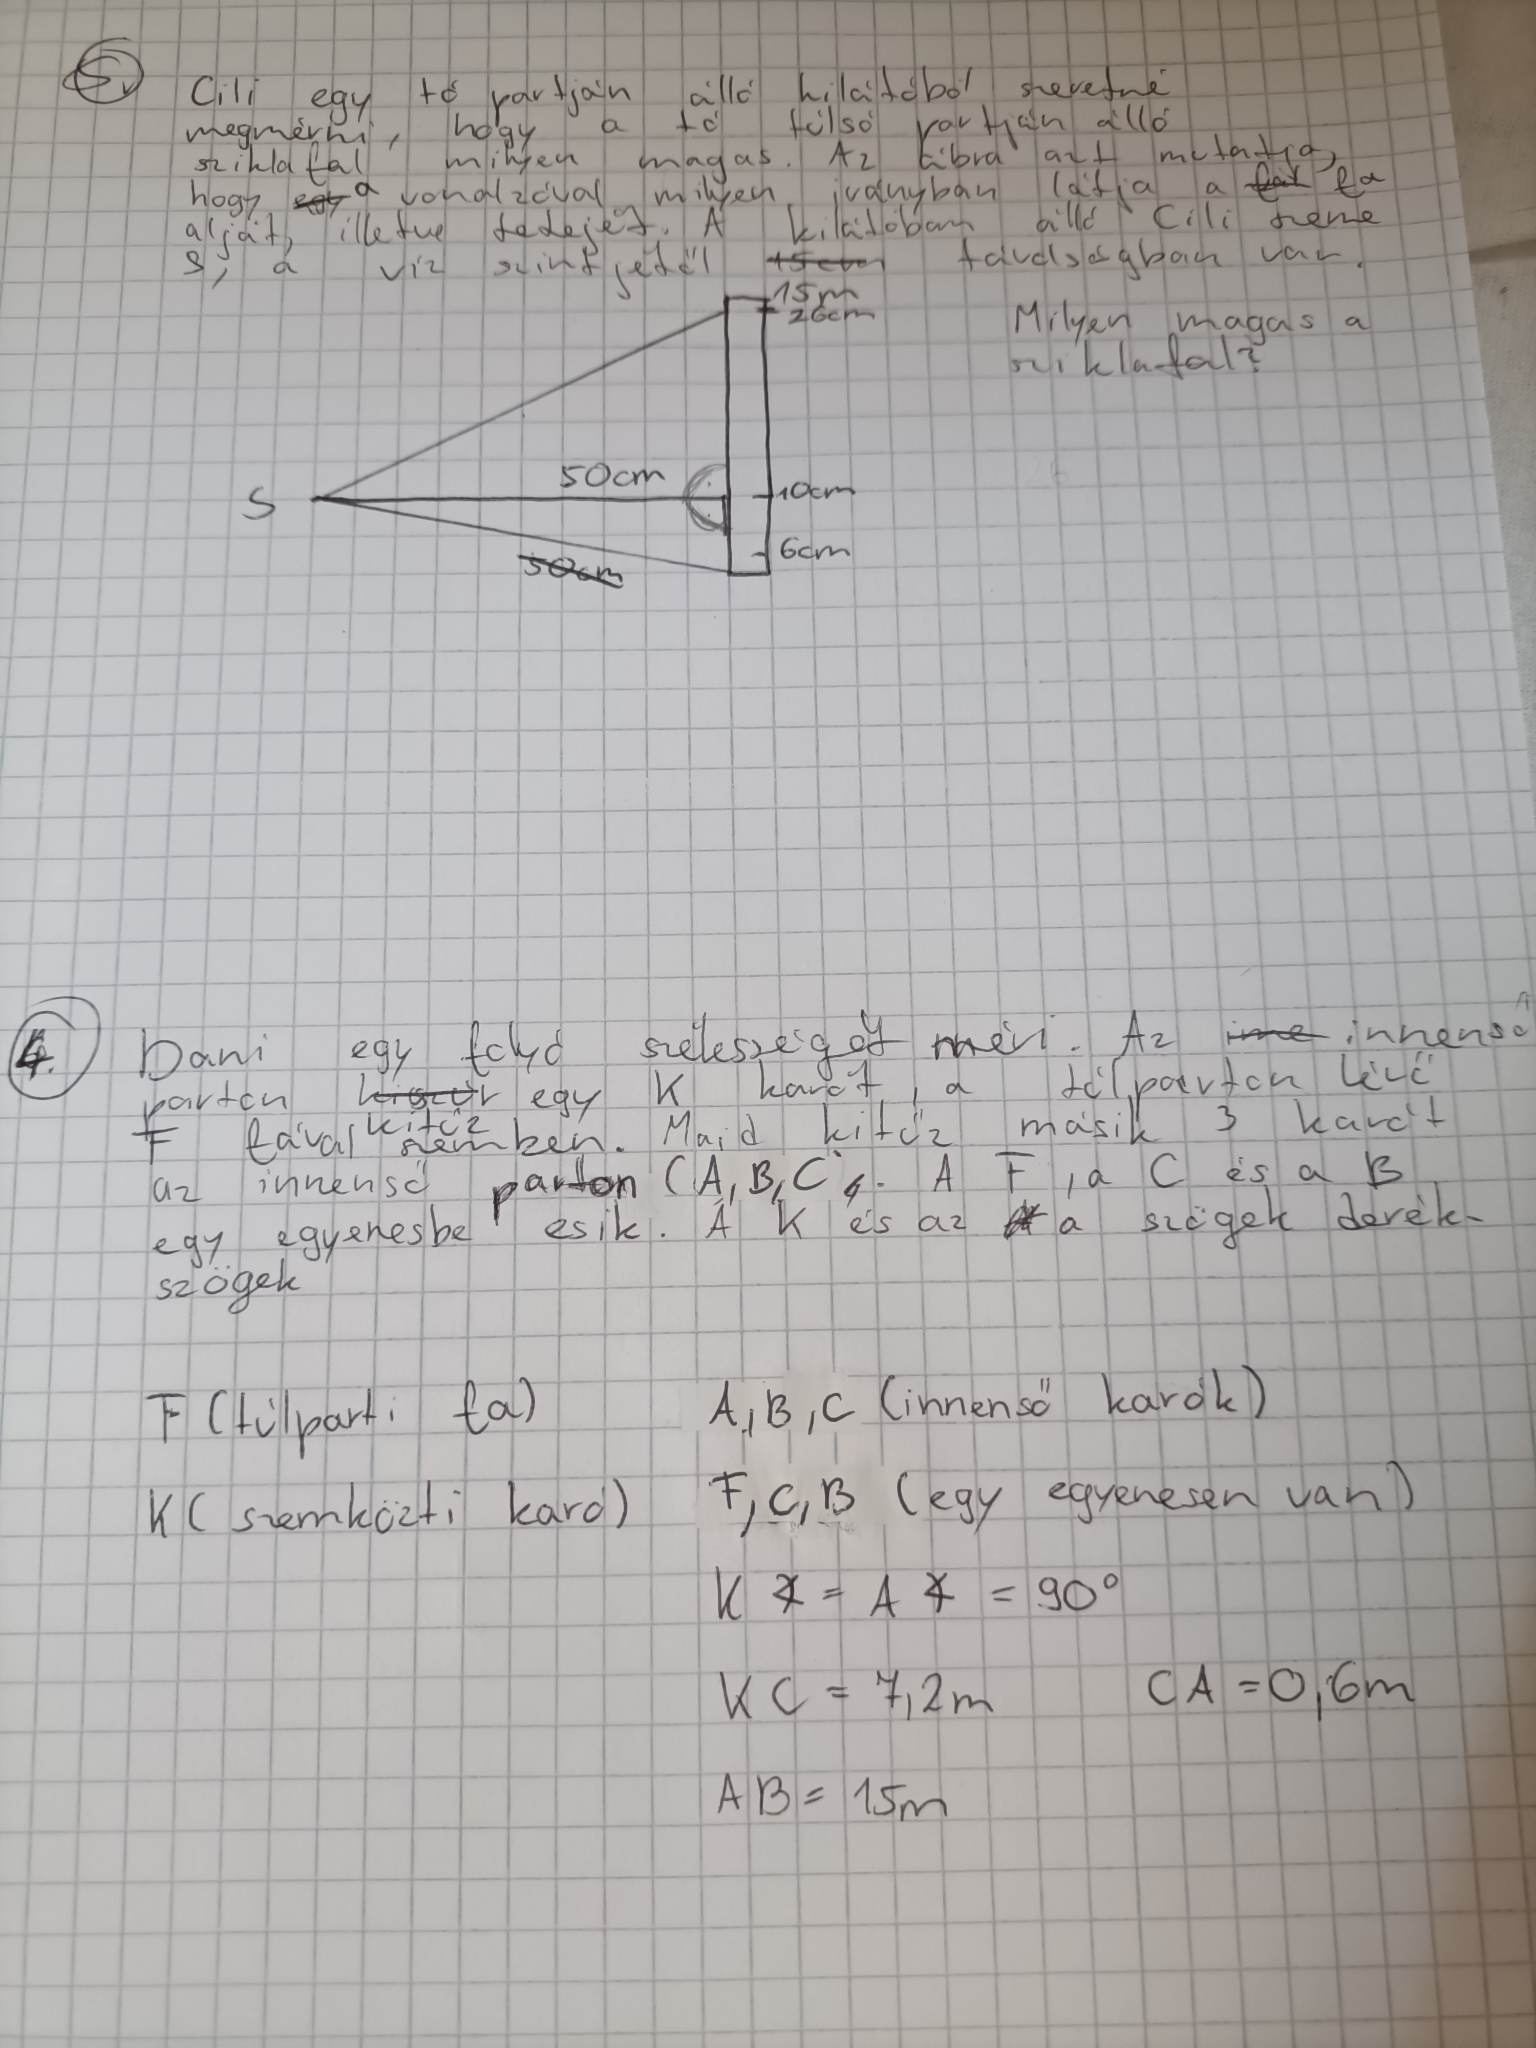 5.
Cili egy tó partján álló kilátóból szeretné
megmérni, hogy a tó túlsó partján álló
sziklafal milyen magas. Az ábra azt mutatja,
hogy egy a vonalzóval milyen irányban látja a fal fa
alját, illetve tetejét. A kilátóban álló Cili szeme
S, a víz szintjétől 15cm távolságban van.
15m
26cm
Milyen magas a
sziklafal?
50cm
S
10cm
6cm
50cm
4.
Dani egy folyó szélességét méri. Az innenső
parton kitűz egy K karót, a túlparton lévő
F fával szemben. Majd kitűz másik 3 karót
az innenső parton (A, B, C). A F, a C és a B
egy egyenesbe esik. A K és az a szögek derék-
szögek
F (túlparti fa) A, B, C (innenső karók)
K (szemközti karó) F, C, B (egy egyenesen van)
K ∢ = A ∢ = 90°
KC = 7,2m CA = 0,6m
AB = 15m